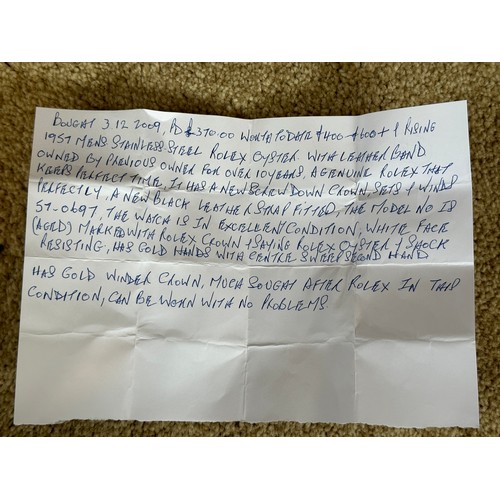 BOUGHT 3.12 2009, PD £370.00 WORTH TO DATE £400 - £600 + & RISING
1957 MENS STAINLESS STEEL ROLEX OYSTER WITH LEATHER BAND
OWNED BY PREVIOUS OWNER FOR OVER 10 YEARS, A GENUINE ROLEX THAT
KEEPS PERFECT TIME, IT HAS A NEW SCREW DOWN CROWN, SETS & WINDS
PERFECTLY, A NEW BLACK LEATHER STRAP FITTED, THE MODEL NO IS
57-0697, THE WATCH IS IN EXCELLENT CONDITION, WHITE FACE
(AGED) MARKED WITH ROLEX CROWN & SAYING ROLEX OYSTER & SHOCK
RESISTING, HAS GOLD HANDS WITH CENTRE SWEEP SECOND HAND
HAS GOLD WINDER CROWN, MUCH SOUGHT AFTER ROLEX IN THIS
CONDITION, CAN BE WORN WITH NO PROBLEMS.